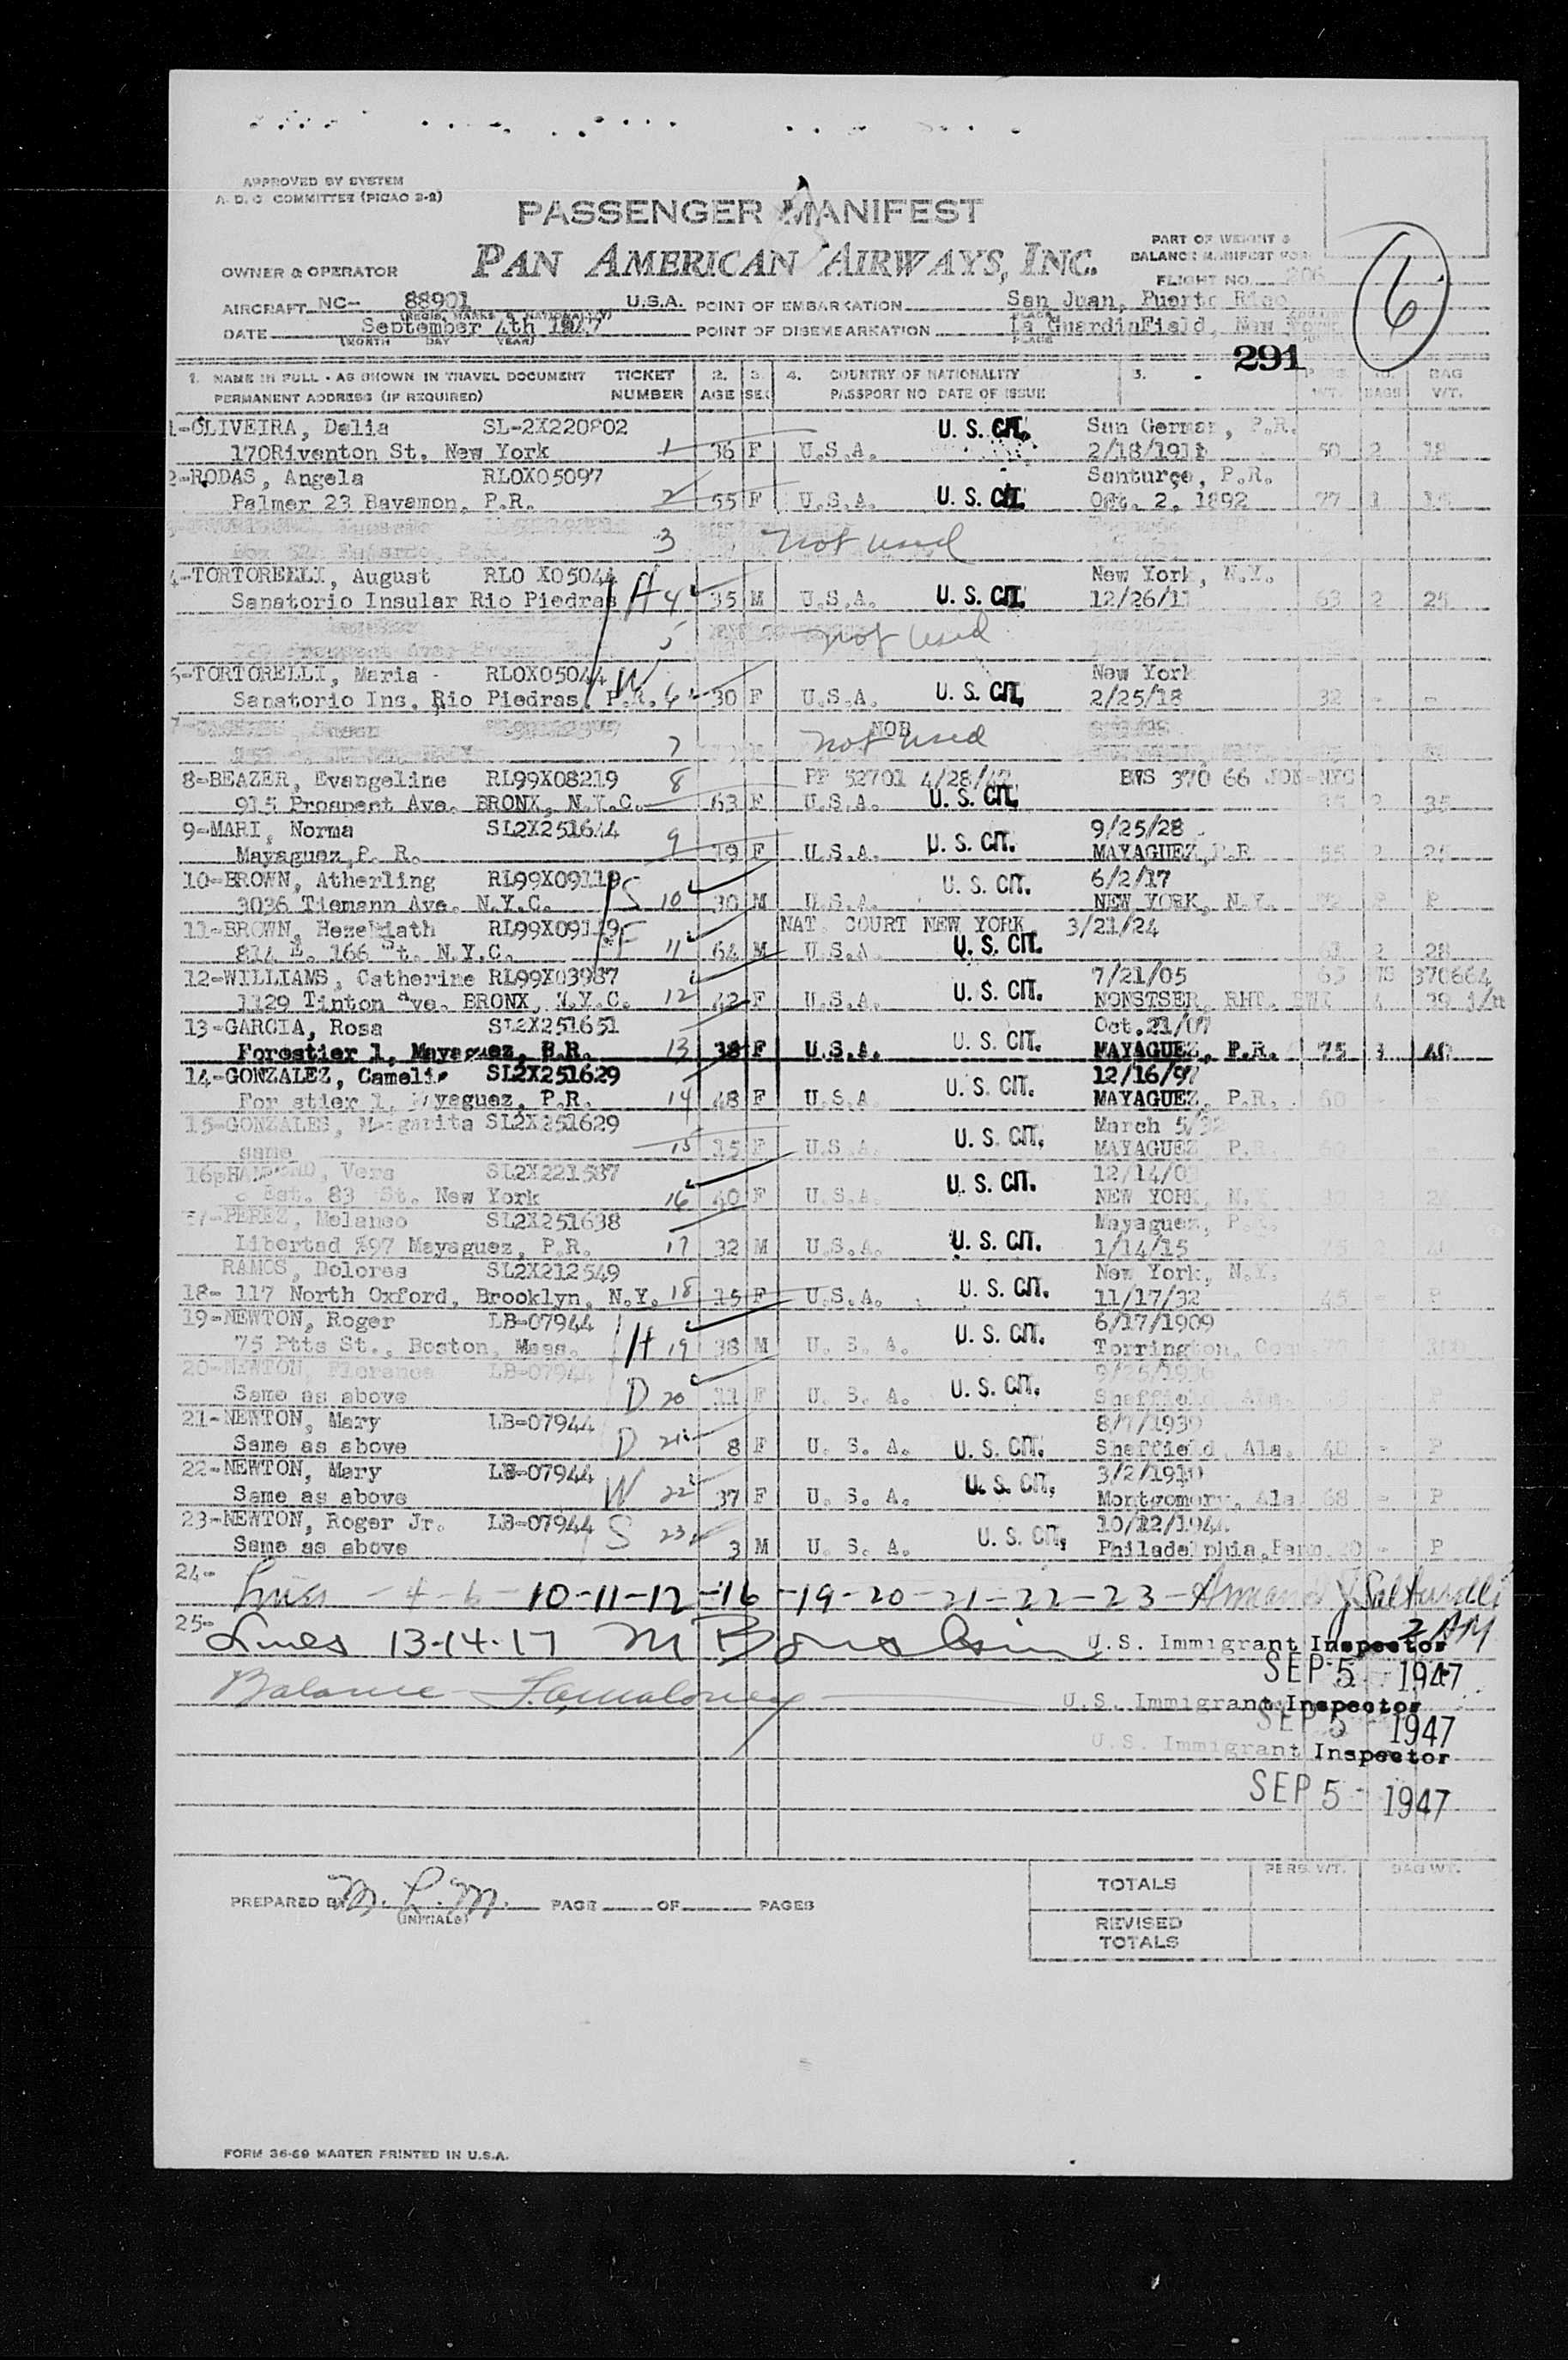 APPROVED BY SYSTEM
A. D. C COMMITTEE (PICAO 2-2)
PASSENGER MANIFEST
PAN AMERICAN AIRWAYS, INC.
PART OF WEIGHT &
BALANCE MANIFEST FOR
OWNER & OPERATOR
FLIGHT NO. 206
AIRCRAFT NC- 88901 U.S.A. POINT OF EMBARKATION San Juan, Puerto Rico
DATE September 4th 1947 POINT OF DISEMBARKATION La GuardiaField, New York
(MONTH DAY YEAR) PLACE
6
291
1. NAME IN FULL - AS SHOWN IN TRAVEL DOCUMENT TICKET 2. 3. 4. COUNTRY OF NATIONALITY 5. BAG
PERMANENT ADDRESS (IF REQUIRED) NUMBER AGE SEX PASSPORT NO DATE OF ISSUE WT. BAGS WT.
1-OLIVEIRA, Delia SL-2X220802 U. S. CIT. San German, P.R.
170Riventon St. New York 1 36 F U.S.A. 2/18/1911 50 2 18
2-RODAS, Angela RLOX05097 Santurce, P.R.
Palmer 23 Bayamon, P.R. 2 55 F U.S.A. U. S. CIT. Oct. 2, 1892 77 1
3 not used
4-TORTORELLI, August RLO X05044 New York, N.Y.
Sanatorio Insular Rio Piedras H 4 35 M U.S.A. U. S. CIT. 12/26/11 63 2 25
5 not used
6-TORTORELLI, Maria - RLOX05044 New York
Sanatorio Ins. Rio Piedras, P.R. W 6 30 F U.S.A. U. S. CIT. 2/25/18 32 - -
7 NOB not used
8-BEAZER, Evangeline RL99X08219 8 PP 52701 4/28/47 BWS 370 66 JON-NYC
915 Prospect Ave. BRONX, N.Y.C. 63 F U.S.A. U. S. CIT. 2 35
9-MARI, Norma SL2X251644 9 9/25/28
Mayaguez,P. R. 19 F U.S.A. U. S. CIT. MAYAGUEZ,P.R 55 2 25
10-BROWN, Atherling RL99X09119 U. S. CIT. 6/2/17
3036 Tiemann Ave. N.Y.C. S 10 30 M U.S.A. NEW YORK, N.Y. P
11-BROWN, Hezekiath RL99X09119 NAT. COURT NEW YORK 3/21/24
814 E. 166 St. N.Y.C. F 11 64 M U.S.A U. S. CIT. 2 28
12-WILLIAMS, Catherine RL99X03987 7/21/05 65 370664
1129 Tinton Ave. BRONX, N.Y.C. 12 42 F U.S.A. U. S. CIT. MONSTSER, RHT. BWI 4 39
13-GARCIA, Rosa SL2X251651 Oct.21/07
Forestier 1, Mayaguez, P.R. 13 38 F U.S.A. U. S. CIT. MAYAGUEZ, P.R. 75 40
14-GONZALEZ, Cameli SL2X251629 12/16/97
For stier 1, Mayaguez, P.R. 14 48 F U.S.A U. S. CIT. MAYAGUEZ, P.R. 60 -
15-GONZALES, Margarita SL2X251629 March 5/32
same 15 15 F U.S.A. U. S. CIT. MAYAGUEZ, P.R. 60
16-HAMMOND, Vera SL2X221587 12/14/0
Est. 83 St. New York 16 40 F U.S.A. U. S. CIT. NEW YORK, N.Y
17-PEREZ, Melanso SL2X251638 Mayaguez, P.R.
Libertad %97 Mayaguez, P.R. 17 32 M U.S.A. U. S. CIT. 1/14/15
RAMOS, Dolores SL2X212549 New York, N.Y.
18- 117 North Oxford, Brooklyn, N.Y. 18 15 F U.S.A. U. S. CIT. 11/17/32 45 - P
19-NEWTON, Roger LB-07944 6/17/1909
75 Ptts St., Boston, Mass. H 19 38 M U. S. A. U. S. CIT. Torrington, Con
20-NEWTON, Florence LB-07944 9/25/1936
Same as above D 20 11 F U. S. A. U. S. CIT. Sheffield, Ala. P
21-NEWTON, Mary LB-07944 8/7/1939
Same as above D 21 8 F U. S. A. U. S. CIT. Sheffield, Ala. 40 - P
22-NEWTON, Mary LB-07944 3/2/1910
Same as above W 22 37 F U. S. A. U. S. CIT. Montgomery, Ala 68 - P
23-NEWTON, Roger Jr. LB-07944 10/12/1944
Same as above S 23 3 M U. S. A. U. S. CIT. Philadelphia,Penn. - P
24- Lines - 4 - 6 - 10-11-12-16-19-20-21-22-23-
25- Lines 13-14-17 U.S. Immigrant Inspector 2 AM
SEP 5 - 1947
Balance U.S. Immigrant Inspector
SEP 5 - 1947
U.S. Immigrant Inspector
SEP 5 - 1947
PREPARED BY M. L. M. PAGE OF PAGES
(INITIALS)
PERS. WT. BAG WT.
TOTALS
REVISED
TOTALS
FORM 36-69 MASTER PRINTED IN U.S.A.